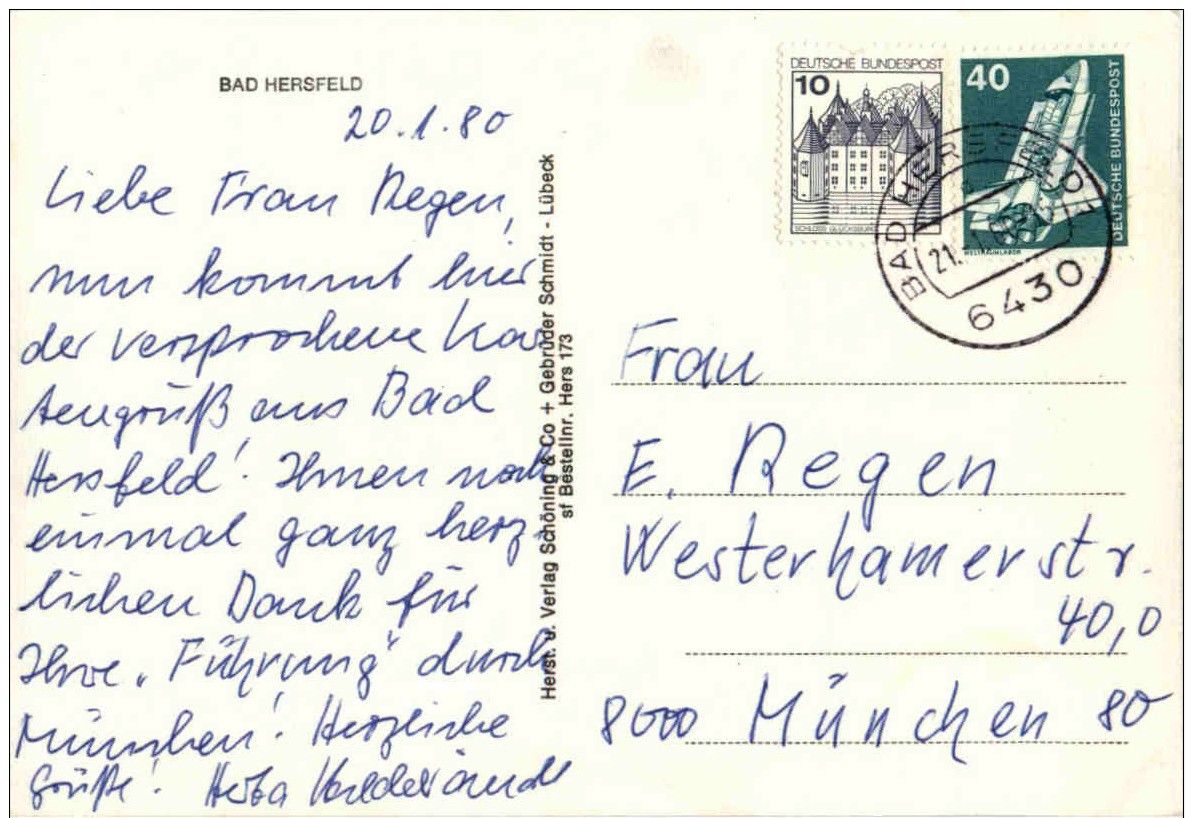 BAD HERSFELD
20.1.80
Liebe Frau Regen,
nun kommt hier
der versprochene Kar
tengruß aus Bad
Hersfeld! Ihnen noch
einmal ganz herz-
lichen Dank für
Ihre "Führung" durch
München! Herzliche
Grüße!
Herst. u. Verlag Schöning & Co + Gebrüder Schmidt - Lübeck
sf Bestellnr. Hers 173
DEUTSCHE BUNDESPOST
10
SCHLOSS GLÜCKSBURG
40
DEUTSCHE BUNDESPOST
WELTRAUMLABOR
BAD HERSFELD
21.
6430
Frau
E. Regen
Westerhamerstr.
40,0
8000 München 80